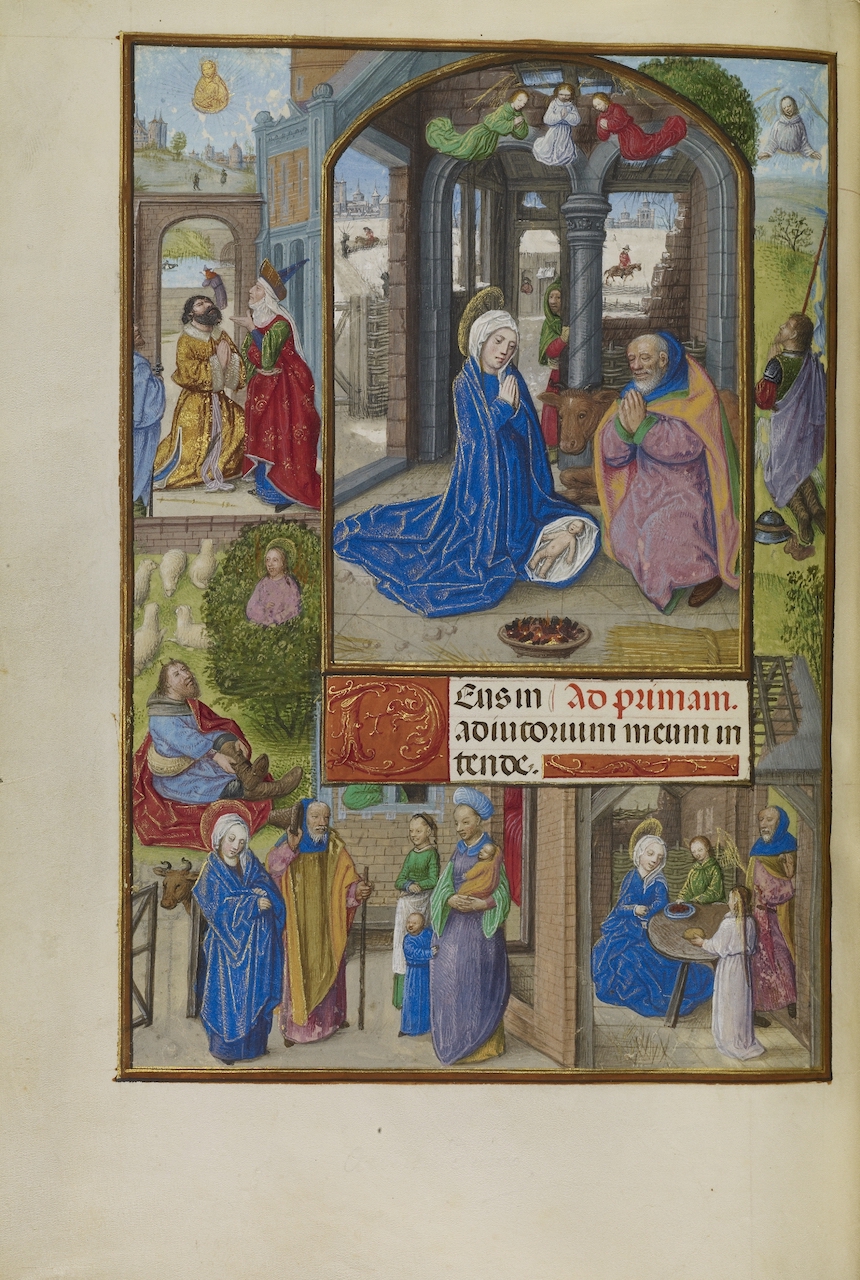 Deus in Ad primam.
adiutorium meum in
tende.